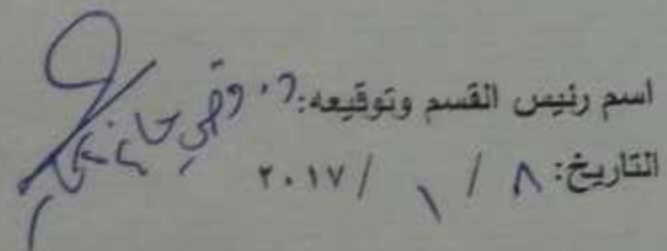 اسم رئيس القسم وتوقيعه: د.
التاريخ: ٨ / ١ / ٢٠١٧